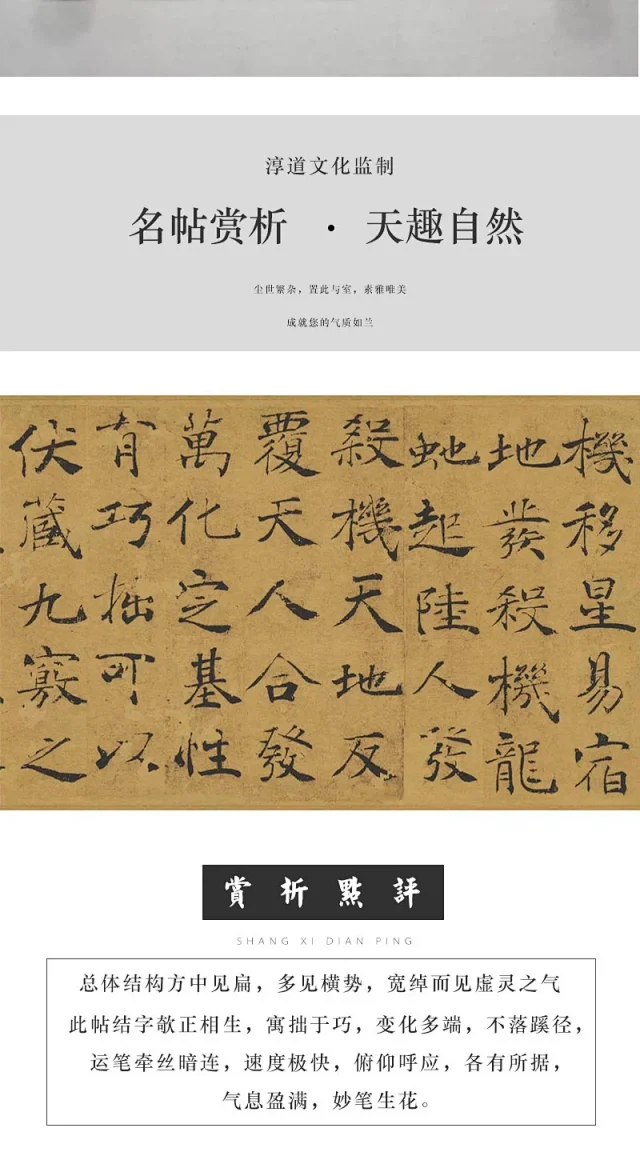 淳道文化监制
名帖赏析 · 天趣自然
尘世繁杂，置此与室，素雅唯美
成就您的气质如兰
機移星易宿
地發殺機龍
虵起陸人發
殺機天地反
覆天人合發
萬化定基性
有巧掘可以
伏藏九竅之
賞析點評
SHANG XI DIAN PING
总体结构方中见扁，多见横势，宽绰而见虚灵之气
此帖结字欹正相生，寓拙于巧，变化多端，不落蹊径，
运笔牵丝暗连，速度极快，俯仰呼应，各有所据，
气息盈满，妙笔生花。